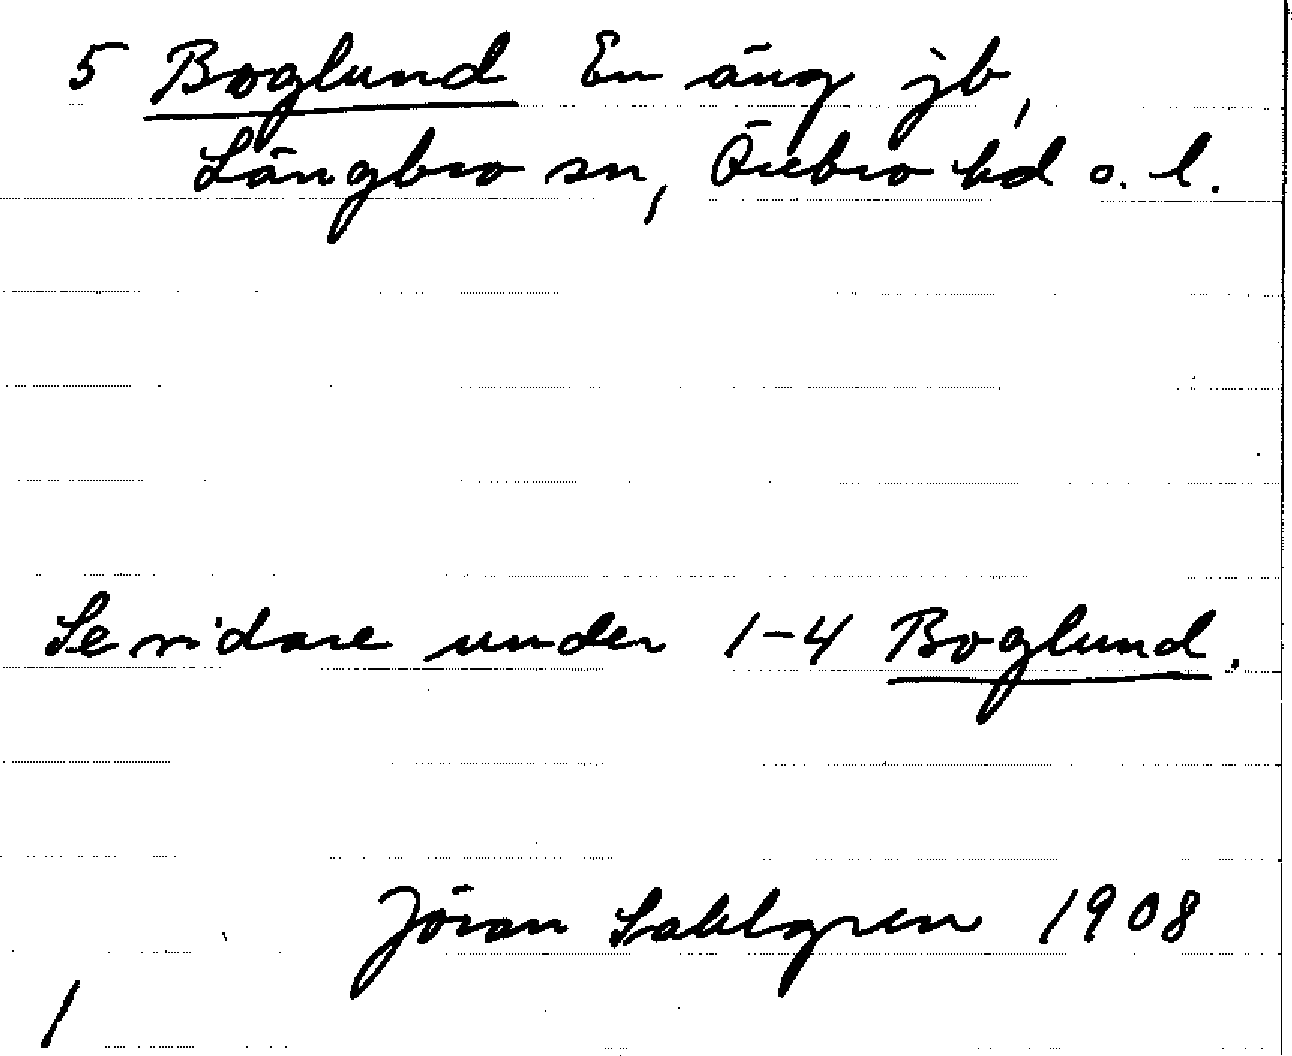 5 Boglund En äng jb,
Längbro sn, Örebro hd o. l.
Se vidare under 1-4 Boglund.
Jöran Sahlgren 1908
/